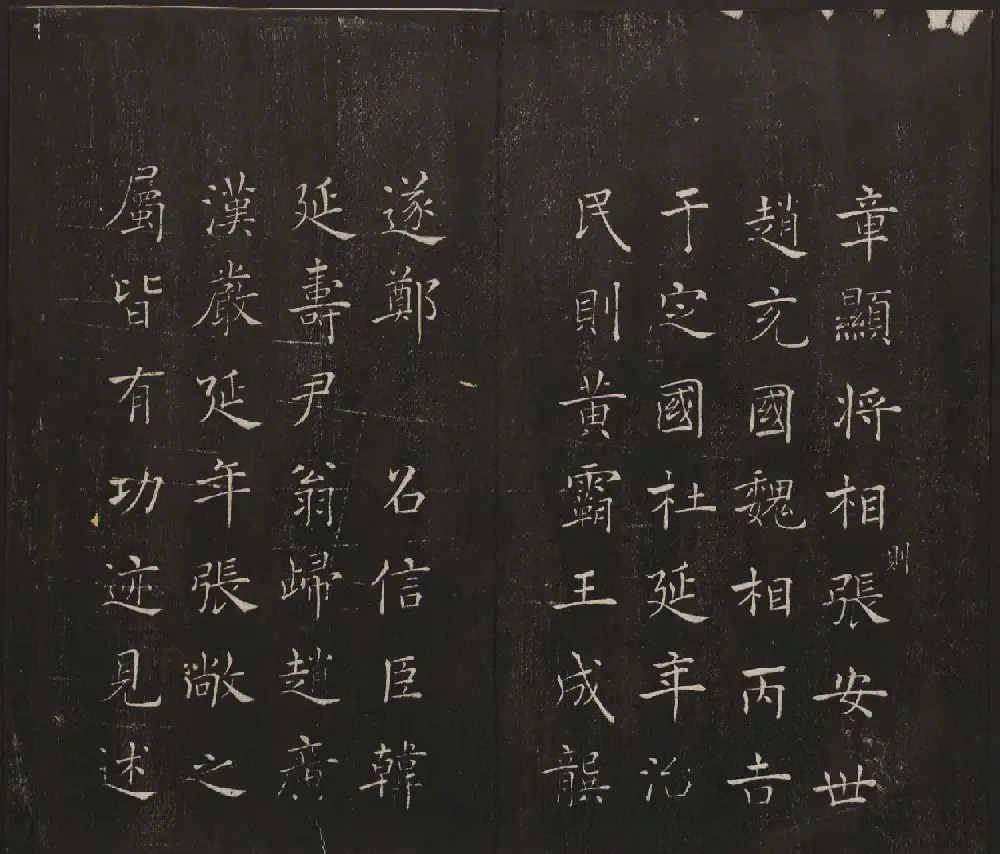 章顯将相則張安世
趙充國魏相丙吉
于定國杜延年治
民則黃霸王成龔
遂鄭 召信臣韓
延壽尹翁歸趙廣
漢嚴延年張敞之
屬皆有功迹見述